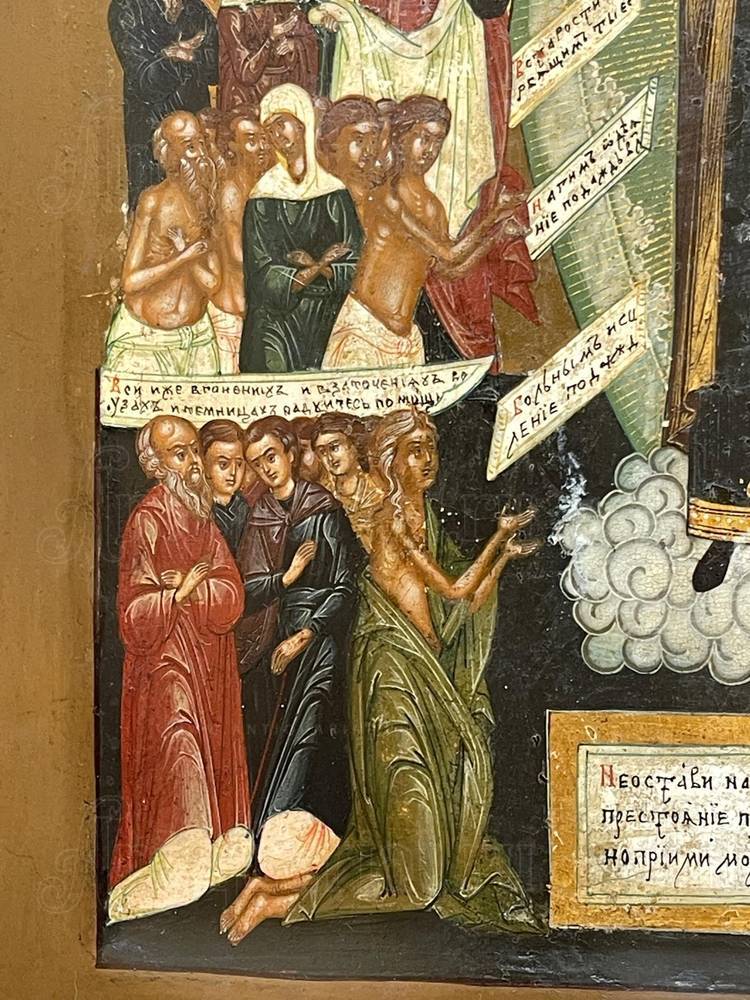 Встарости
рѣющимъ
Нагимъ одѣѧ
нїе подаждь
Больнымъ исц
ѣленїе подажд
Вси иже вгоненихъ и взаточенїахъ во
узахъ итемницахъ радуитесь помощь
Неостави на
престоѧнїе п
нопрїими мо